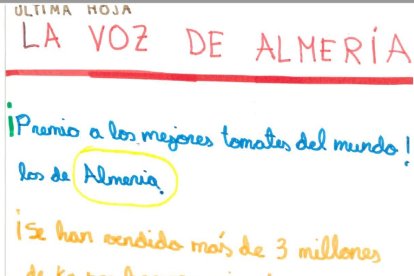 ÚLTIMA HOJA
LA VOZ DE ALMERÍA
¡Premio a los mejores tomates del mundo!
los de Almeria.
¡Se han vendido más de 3 millones
de